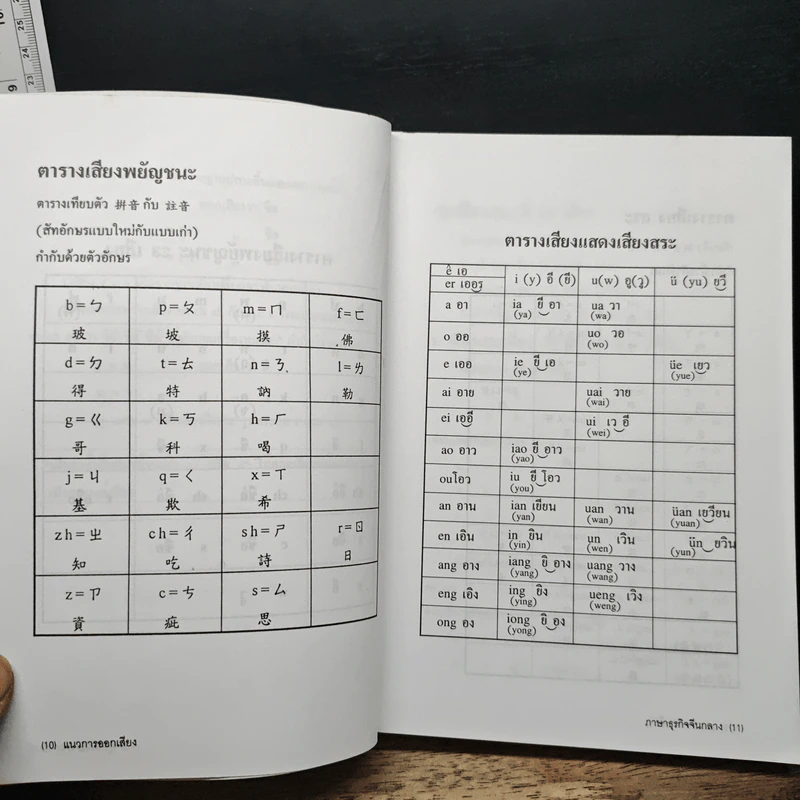 ตารางเสียงพยัญชนะ
ตารางเทียบตัว 拼音 กับ 註音
(สัทอักษรแบบใหม่กับแบบเก่า)
กำกับด้วยตัวอักษร
b = ㄅ p = ㄆ m = ㄇ f = ㄈ
玻 坡 摸 佛
d = ㄉ t = ㄊ n = ㄋ l = ㄌ
得 特 訥 勒
g = ㄍ k = ㄎ h = ㄏ
哥 科 喝
j = ㄐ q = ㄑ x = ㄒ
基 欺 希
zh = ㄓ ch = ㄔ sh = ㄕ r = ㄖ
知 吃 詩 日
z = ㄗ c = ㄘ s = ㄙ
資 疵 思
(10) แนวการออกเสียง
ตารางเสียงแสดงเสียงสระ
ê เอ
er เออร i (y) อี (ยี) u(w) อู(วู) ü (yu) ยวี
a อา ia ยี อา ua วา
(ya) (wa)
o ออ uo วอ
(wo)
e เออ ie ยี เอ üe เยว
(ye) (yue)
ai อาย uai วาย
(wai)
ei เออี ui เว อี
(wei)
ao อาว iao ยี อาว
(yao)
ouโอว iu ยี โอว
(you)
an อาน ian เยียน uan วาน üan เยวียน
(yan) (wan) (yuan)
en เอิน in ยิน un เวิน ün ยวิน
(yin) (wen) (yun)
ang อาง iang ยิ อาง uang วาง
(yang) (wang)
eng เอิง ing ยิง ueng เวิง
(ying) (weng)
ong อง iong ยิ อง
(yong)
ภาษาธุรกิจจีนกลาง (11)